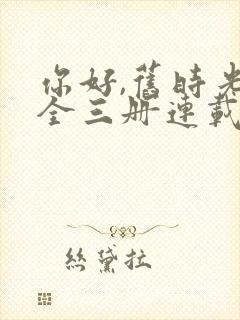 你好,舊時光
全三册連載
絲黛拉